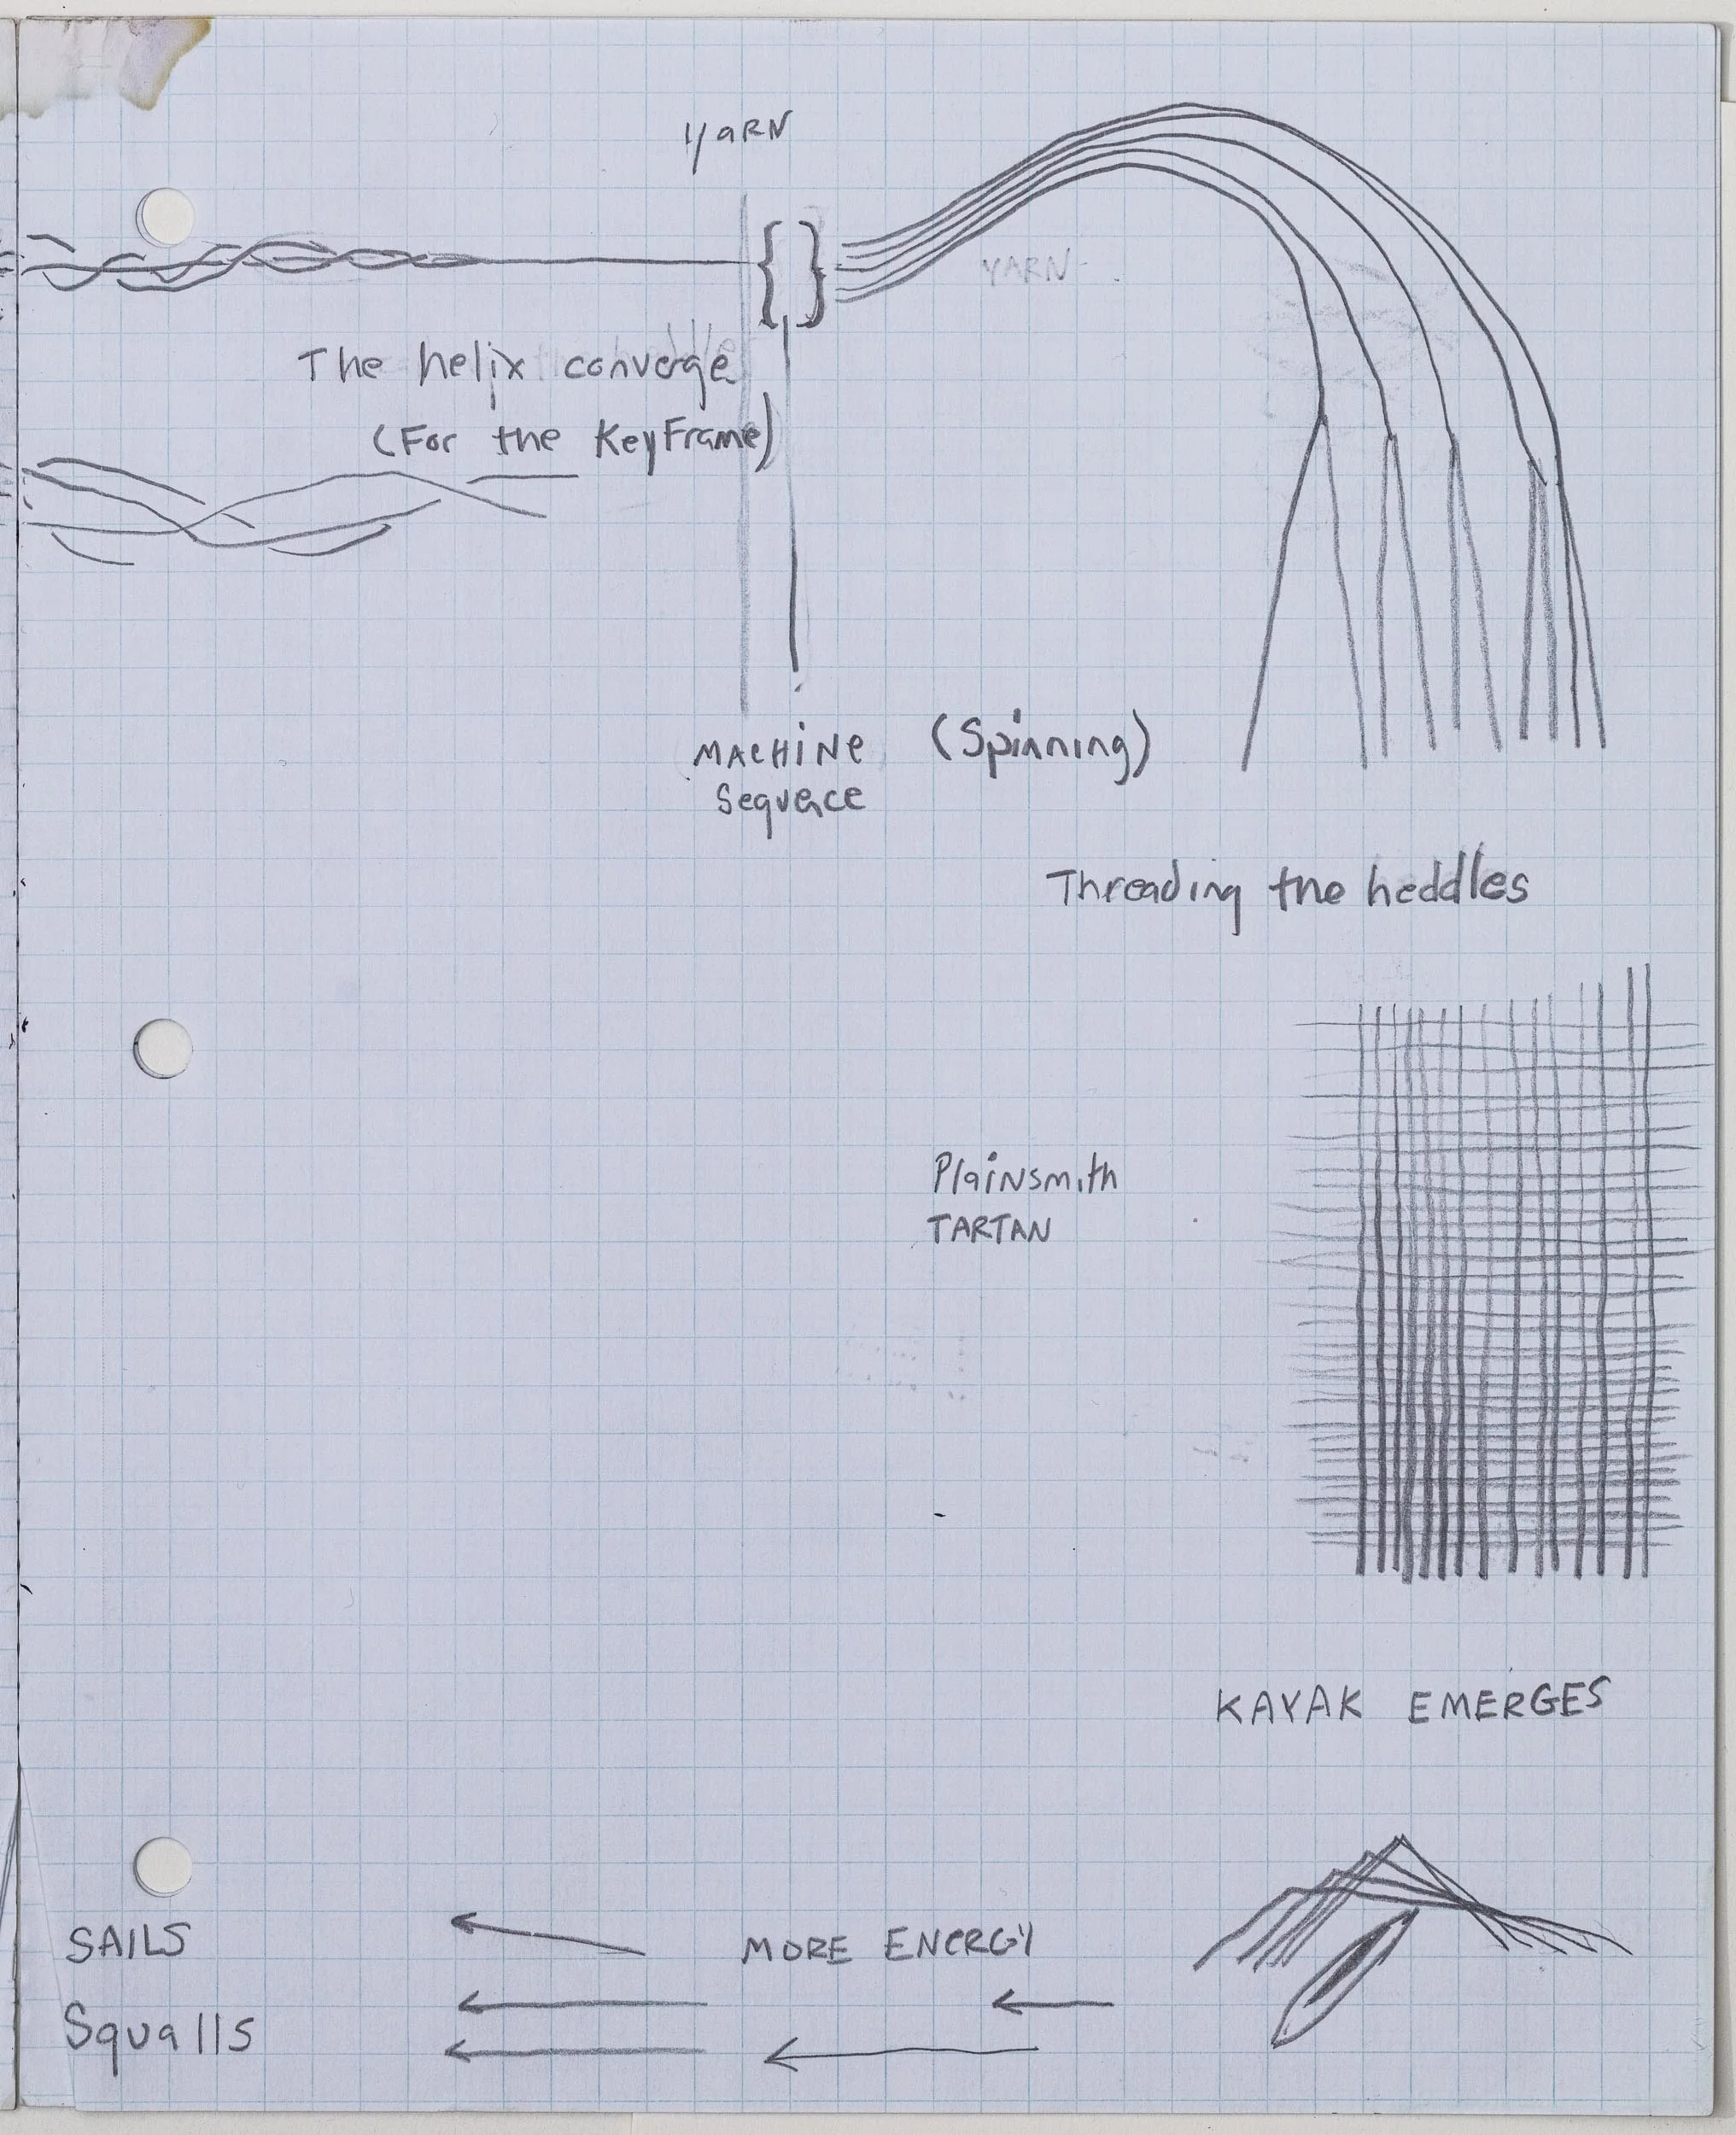 YaRN
{ }
YARN
The helix converge
(For the KeyFrame)
MACHiNe
Sequence
(Spinning)
Threading the heddles
PlaiNsmith
TARTAN
KAYAK EMERGES
SAILS
MORE ENERGY
Squalls